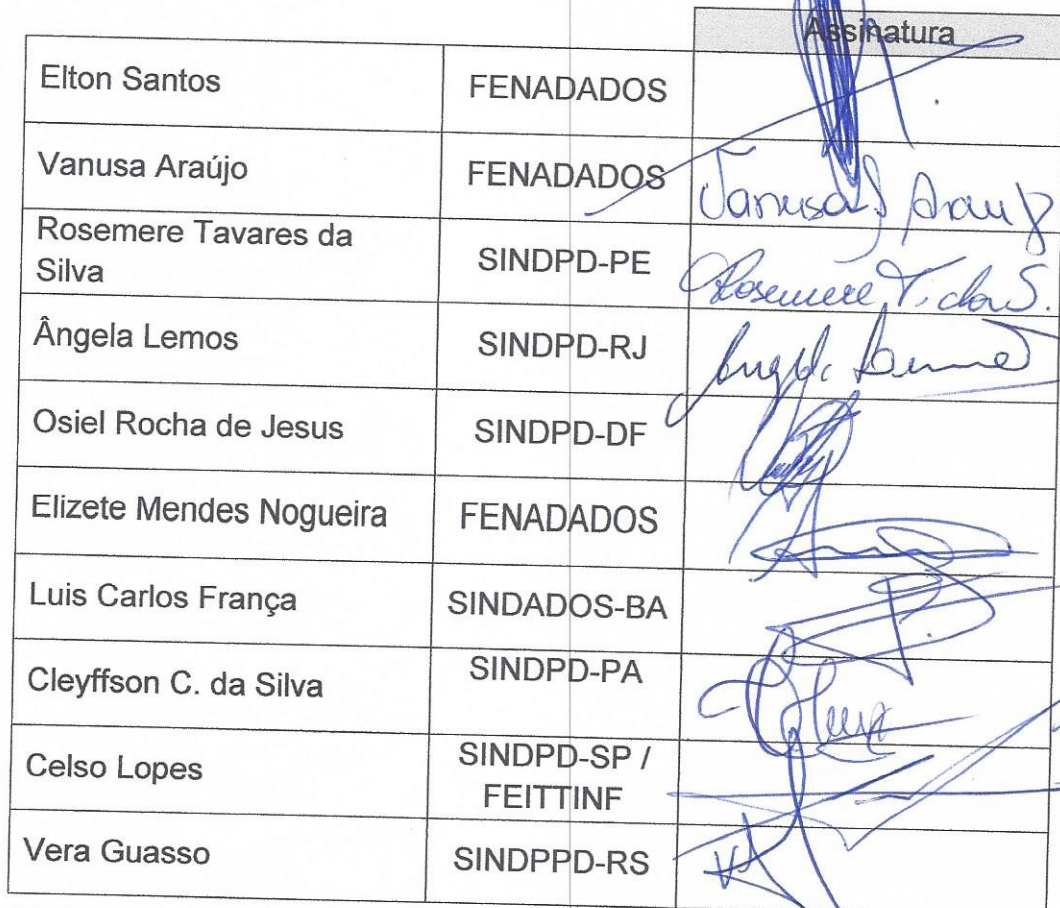 Assinatura
Elton Santos FENADADOS
Vanusa Araújo FENADADOS Vanusa Araujo
Rosemere Tavares da
Silva SINDPD-PE Rosemere T. da S.
Ângela Lemos SINDPD-RJ
Osiel Rocha de Jesus SINDPD-DF
Elizete Mendes Nogueira FENADADOS
Luis Carlos França SINDADOS-BA
Cleyffson C. da Silva SINDPD-PA
Celso Lopes SINDPD-SP /
FEITTINF
Vera Guasso SINDPPD-RS